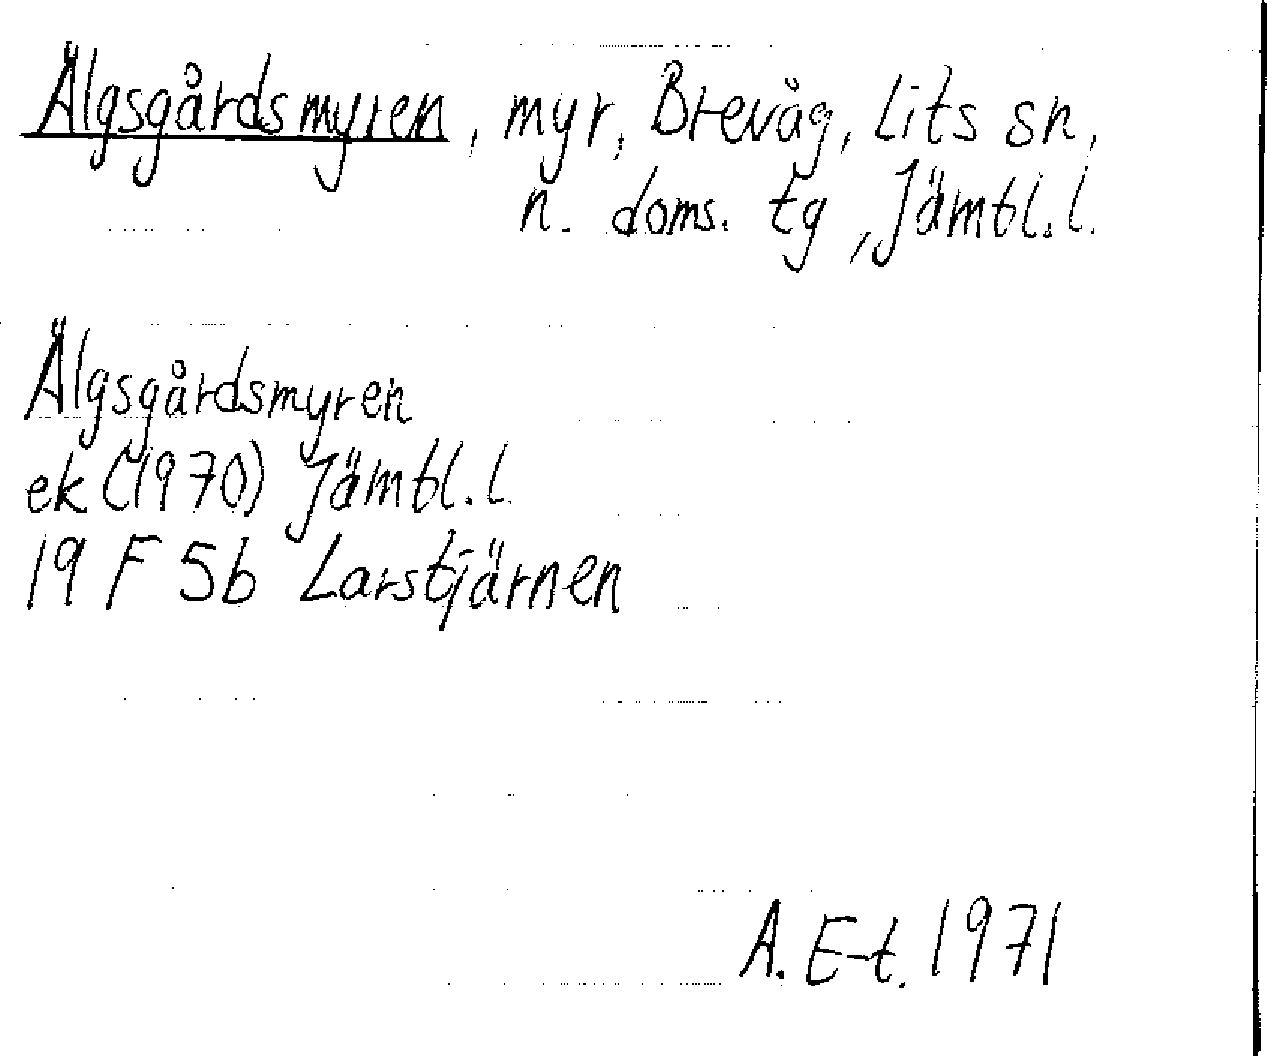 Älgsgårdsmyren, myr, Brevåg, Lits sn,
n. doms. tg, Jämtl. l.
Älgsgårdsmyren
ek (1970) Jämtl. l.
19 F 5b Larstjärnen
A. E-t. 1971